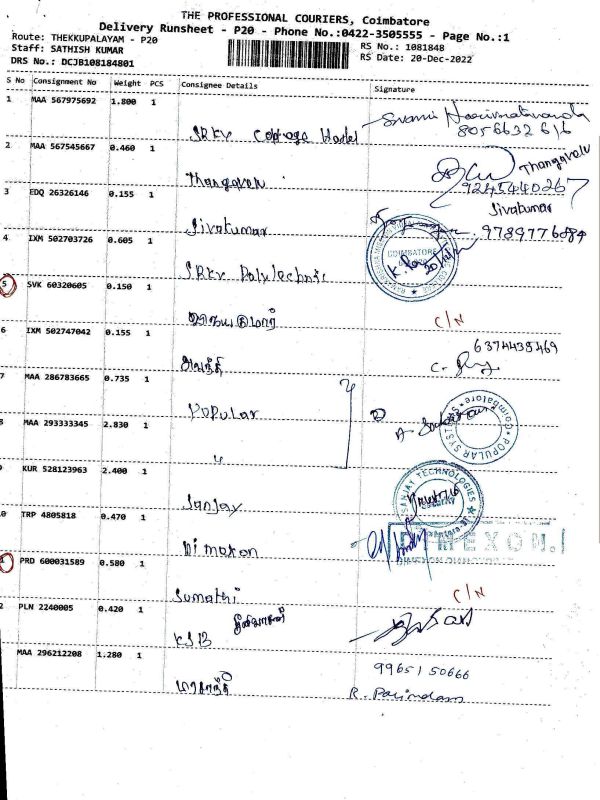 THE PROFESSIONAL COURIERS, Coimbatore
Delivery Runsheet - P20 - Phone No.:0422-3505555 - Page No.:1
Route: THEKKUPALAYAM - P20
Staff: SATHISH KUMAR
DRS No.: DCJB108184801
RS No.: 1081848
RS Date: 20-Dec-2022
S No Consignment No Weight PCS Consignee Details Signature
1 MAA 567975692 1.800 1
SRKV Hostel
8056632616
2 MAA 567545667 0.460 1
Thangavelu
Thangavelu
9245440267
3 EDQ 26326146 0.155 1
Sivakumar
Sivakumar
9789776084
4 IXM 502703726 0.605 1
SRKV Polytechnic
COIMBATORE
5 SVK 60320605 0.150 1
C/N
6 IXM 502747042 0.155 1
6374438469
7 MAA 286783665 0.735 1
Popular
POPULAR SYSTEMS Coimbatore
8 MAA 293333345 2.830 1
KUR 528123963 2.400 1
Sanjay
SANJAY TECHNOLOGIES
Security
0 TRP 4805818 0.470 1
Dimexon
DIMEXON
PRD 600031589 0.580 1
Sumathi
C/N
2 PLN 2240005 0.420 1
KSB
MAA 296212208 1.280 1
9965150666